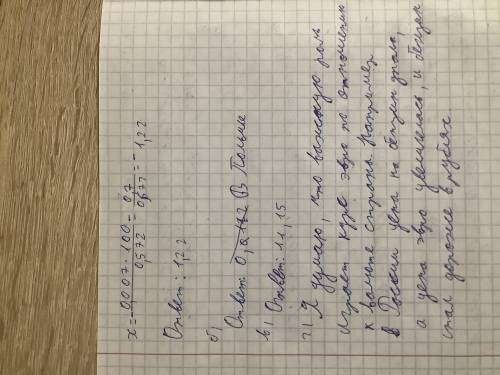 x = 0,007 · 100 / 0,572 = 0,7 / 0,577 = - 1,22
Ответ: 1,22
б)
Ответ: В Польше
в) Ответ: 11,15
г) Я думаю, что важную роль
играет курс евро по отношению
к валюте страны. Например
в России цена на бензин упала,
а цена евро увеличилась, и бензин
стал дороже в рублях.